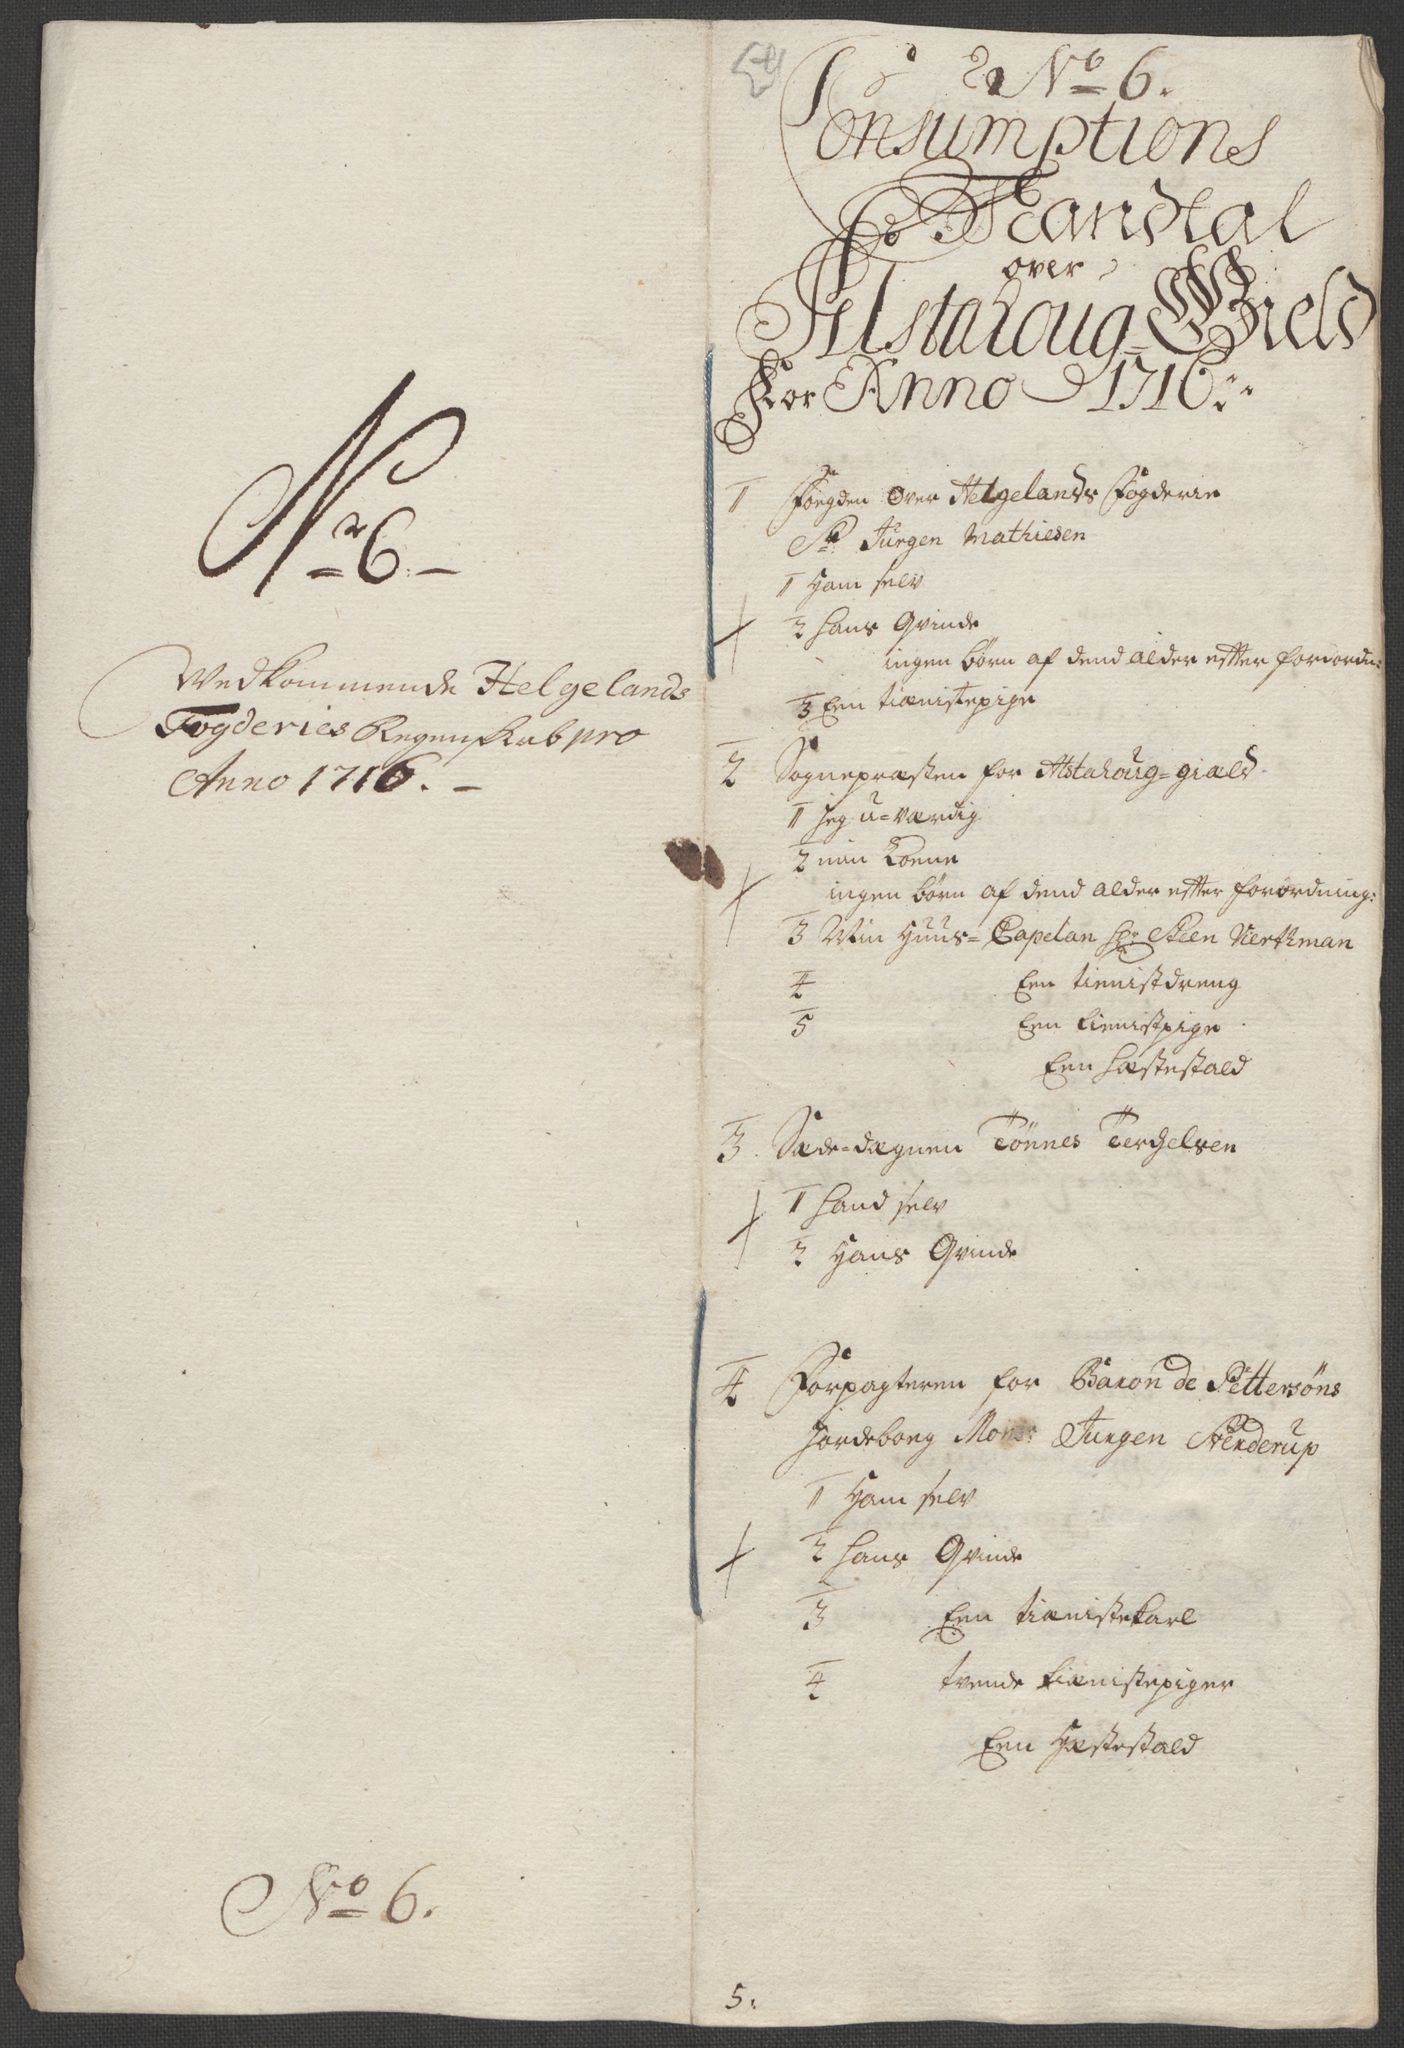 No 6.
Vedkommende Helgelands
Fogderies Regenskab pro
Anno 1716.
No 6.
No 6.
Consumptions
Mandtal
over
Alstahoug-Gield
For Anno 1716.
1 Foegden Over Helgelands Fogderie
Sr. Jürgen Mathiesen
1 Ham selv
2 hans Qvinde
ingen børn af dend alder efter forordn:
3 Een tienistepige
2 Sognepræsten for Alstahoug-giæld
1 jeg u-værdig
2 min Kone
ingen børn af dend alder efter forordning:
3 Min Huus-Capelan Hr Steen Nerkman
4 Een tienistdreng
5 Een tienistpige
Een hæstestald
3 Sæde-dægnen Tönnes Terchelsen
1 Hand selv
2 Hans Qvinde
4 Forpagteren for Baron de Pettersøns
Jordeboeg Mons: Jurgen Stenderup
1 Ham selv
2 hans Qvinde
3 Een tienistekarl
4 tvende tienistepiger
Een Hæstestald
5.